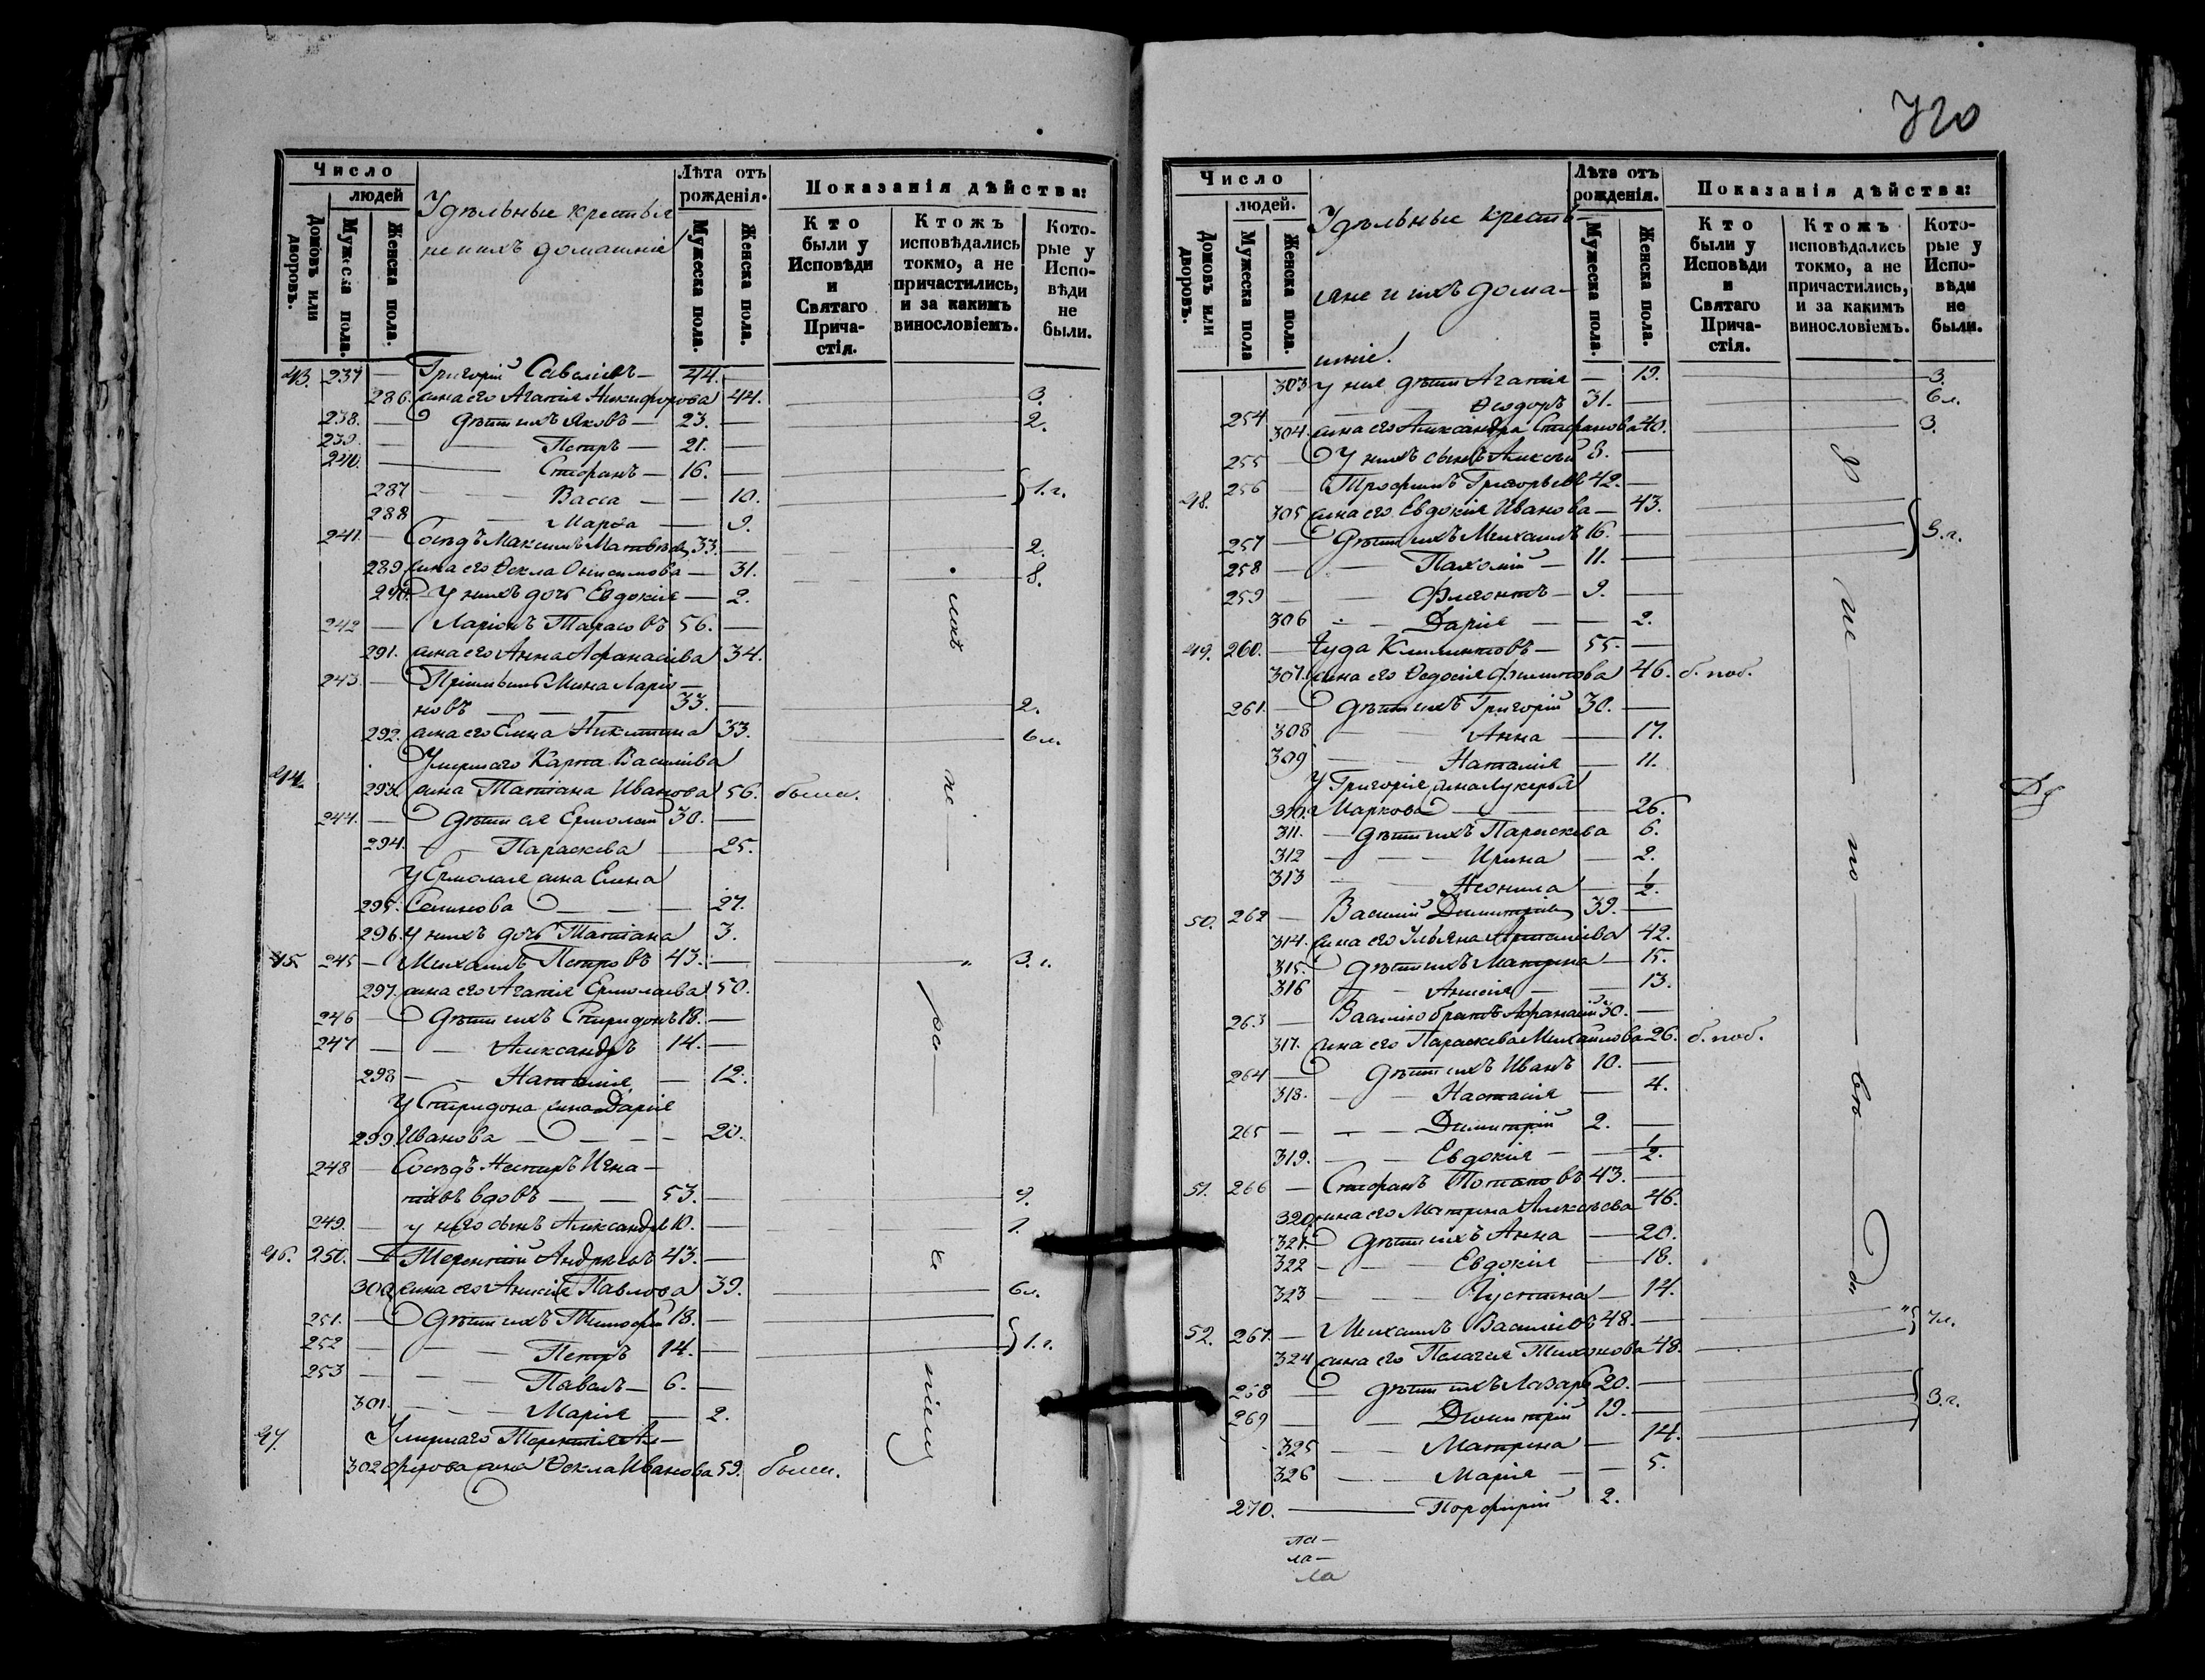 720
Число
людей
Домовъ или дворовъ.
Мужеска пола.
Женска пола.
Удѣльные крестья
не и ихъ домашніе
Лѣта отъ рожденія.
Мужеска пола.
Женска пола.
Показанія дѣйства:
Кто были у Исповѣди и Святаго Прича-стія.
Ктожъ исповѣдались токмо, а не причастились, и за какимъ винословіемъ.
Кото-рые у Испо-вѣди не были.
43. 237 — Григорій Савеліевъ — 44. —
286. жена его Агапія Никифорова 44. 3.
238. — дѣти ихъ Яковъ — 23. — 2.
239. — Петръ — 21. —
240. — Стефанъ — 16. —
287 — Васса — — 10. 1. г.
288 — Марѳа — 9.
241. — Сосѣдъ Максимъ Матвѣевъ 33. — 2.
289. жена его Ѳекла Онисимова — 31. 8.
290. У нихъ дочь Евдокія — 2.
242 — Ларіонъ Тарасовъ 56. —
291. жена его Анна Афанасіева 34.
243. — Мина Ларіо-
новъ — — 33. — 2.
292. жена его Елена Никитина 33. 6 л.
Умершаго Карпа Василіева
44. 293. жена Татіана Иванова 56. была.
244. — дѣти ея Ермолай 30. —
294. — Параскева — 25.
У Ермолая жена Елена
295. Семенова — — 27.
296. У нихъ дочь Татіана 3.
45. 245 — Михаилъ Петровъ 43. — 3. г.
297. жена его Агапія Ермолаева 50.
246 — дѣти ихъ Спиридонъ 18. —
247 — — Александръ 14. —
298 — — Наталія — 12.
У Спиридона жена Дарія
299 Иванова — — — 20.
248 — Сосѣдъ Нестеръ Игна-
тіевъ вдовъ — — 53. — 9.
249. — у него сынъ Александръ 10. —
46. 250. — Терентій Андреевъ 43. —
300 жена его Анисія Павлова 39. 6 л.
251. — дѣти ихъ Тимофей 18. —
252 — — Петръ 14. — 1. г.
253 — — Павелъ — 6. —
301. — — Марія — 2.
47. Умершаго
302 жена Ѳекла Иванова 59. была.
Число
людей.
Домовъ или дворовъ.
Мужеска пола
Женска пола.
Удѣльные кресть-
яне и ихъ дома-
шніе.
Лѣта отъ рожденія.
Мужеска пола.
Женска пола.
Показанія дѣйства:
Кто были у Исповѣди и Святаго Прича-стія.
Ктожъ исповѣдались токмо, а не причастились, и за какимъ винословіемъ.
Кото-рые у Испо-вѣди не были.
303 у нея дѣти Агапія — 19. 3.
254 — Ѳеодоръ 31. — 6 л.
304 жена его Александра Стефанова 40. 3.
255 — У нихъ сынъ Алексѣй 8. —
48. 256 — Трофимъ Григорьевъ 42. —
305 жена его Евдокія Иванова — 43.
257 — дѣти ихъ Михаилъ 16. — 3. г.
258 — — Пахомій — 11. —
259 — — Флегонтъ — 9. —
306 — — Дарія — — 2.
49. 260. — Іуда Климентовъ — 55. —
307. жена его Ѳедосія Филипова 46. б. поб.
261. — дѣти ихъ Григорій 30. —
308 — Анна — 17.
309 — Наталія — 11.
У Григорія жена Лукерья
310. Маркова — 26.
311. — дѣти ихъ Параскева 6.
312 — — Ирина — 2.
313 — — Неонила — 1/2.
50. 262 — Василій Димитріевъ 39. —
314. жена его Ульяна 42.
315. дѣти ихъ Матрена — 15.
316 — Анисія — — 13.
263 — Василію братъ Афанасій 30. —
317. жена его Параскева Михайлова 26. б. поб.
264 — дѣти ихъ Иванъ 10. —
318. — — Настасія — 4.
265 — — — Димитрій 2. —
319. — — Евдокія — 1/2.
51. 266 — Стефанъ Потаповъ 43. —
320 жена его Матрена Алексѣева 46.
321. дѣти ихъ Анна — 20.
322 — — — Евдокія — 18.
323 — — Іустина — 14.
52. 267. — Михаилъ Василіевъ 48. — 7 л.
324 жена его Пелагея Тихонова 48.
268 — дѣти ихъ Лазарь 20. —
269 — — Димитрій 19. — 3. г.
325 — — Матрена — 14.
326 — — Марія — — 5.
270. — Порфирій 2.